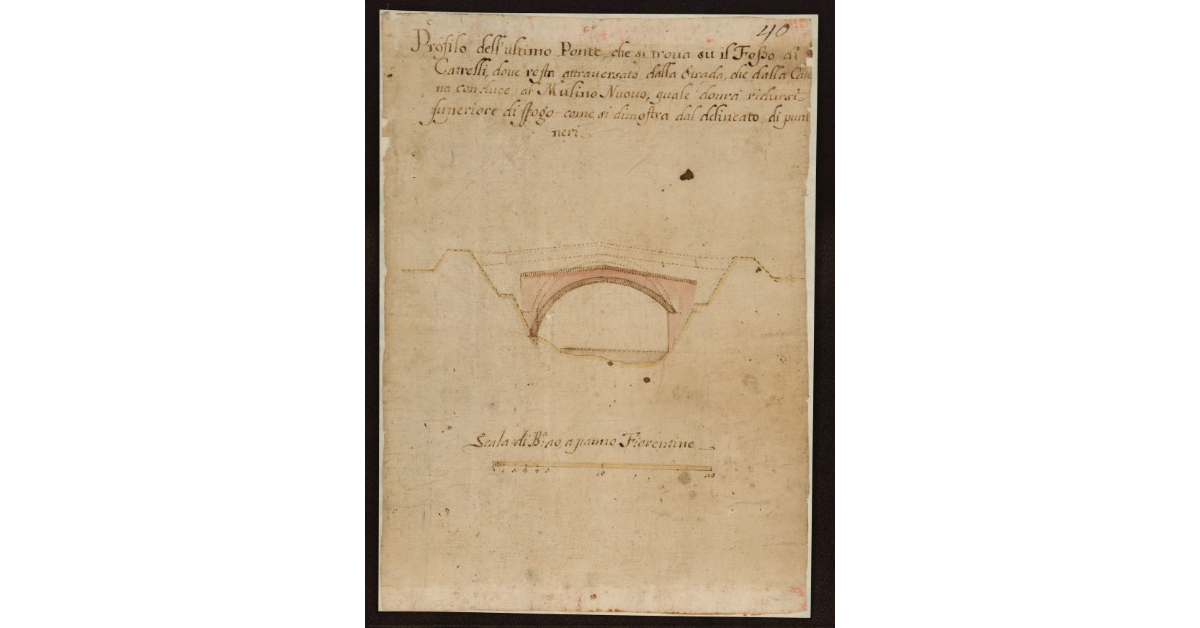 40
Profilo dell'ultimo Ponte, che si troua su il Foßo di
Catrelli, doue resta attrauersato dalla Strada, che dalla
na conduce al Mulino Nuouo, quale dourà ridursi
superiore di sfogo come si dimostra dal delineato di punt
neri.
Scala di B.a 20 a panno Fiorentine
1 2 3 4 5 10 20